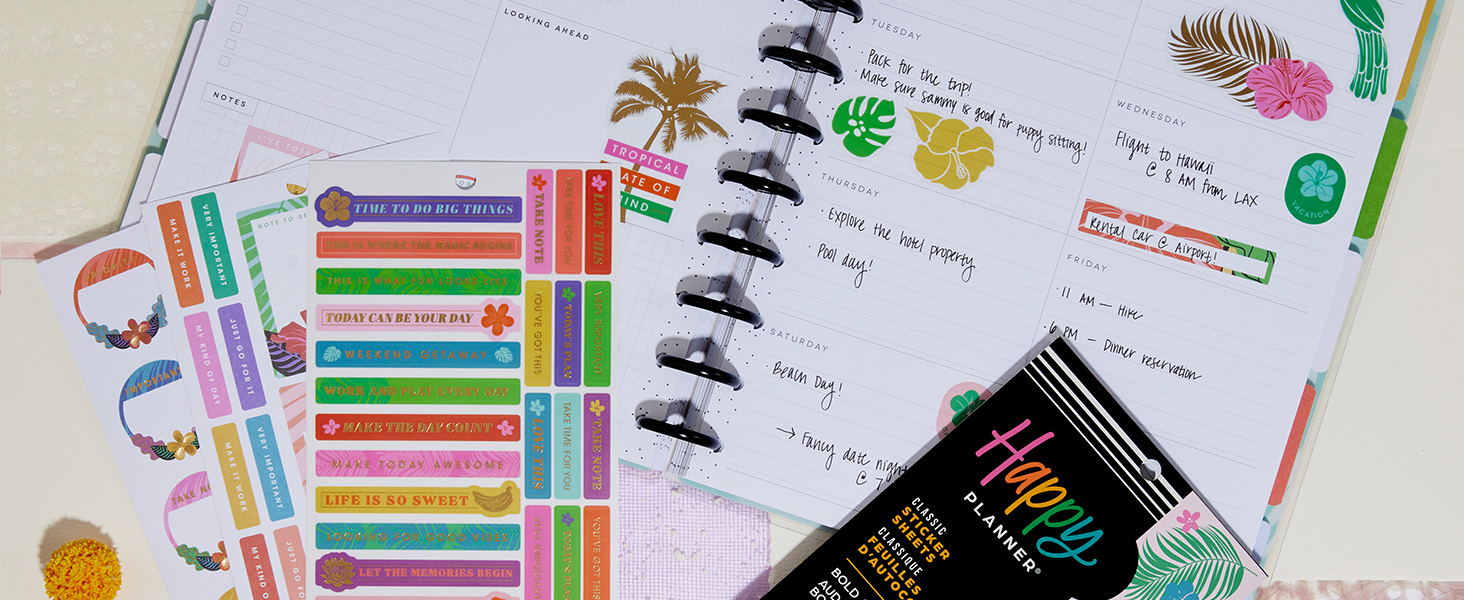 LOOKING AHEAD
NOTES
I'VE
TROPICAL
ATE OF
IND
TUESDAY
Pack for the trip!
· Make sure sammy is good for puppy sitting!
WEDNESDAY
Flight to Hawaii
@ 8 AM from LAX
VACATION
Rental Car @ Airport!
THURSDAY
· Explore the hotel property
Pool day!
FRIDAY
· 11 AM — Hike
PM — Dinner reservation
SATURDAY
Beach Day!
→ Fancy date night
@ 7
NOTE TO SE
MAKE IT WORK
VERY IMPORTANT
MY KIND OF DAY
JUST GO FOR IT
MAKE IT WORK
VERY IMPORTANT
MY KIND O
JUST GO FO
IMPORTAN
TAKE NO
TIME TO DO BIG THINGS
THIS IS WHERE THE MAGIC BEGINS
THIS IS WHAT FUN LOOKS LIKE
TODAY CAN BE YOUR DAY
WEEKEND GETAWAY
WORK AND PLAY EVERY DAY
MAKE THE DAY COUNT
MAKE TODAY AWESOME
LIFE IS SO SWEET
LOOKING FOR GOOD VIBES
LET THE MEMORIES BEGIN
TAKE NOTE
TAKE TIME FOR YOU
LOVE THIS
YOU'VE GOT THIS
TODAY'S PLAN
VERY IMPORTANT
LOVE THIS
TAKE TIME FOR YOU
TAKE NOTE
YOU'VE GOT THIS
Happy
PLANNER®
CLASSIC
STICKER
SHEETS
CLASSIQUE
FEUILLES
D'AUTOC
BOLD
AUD
BO